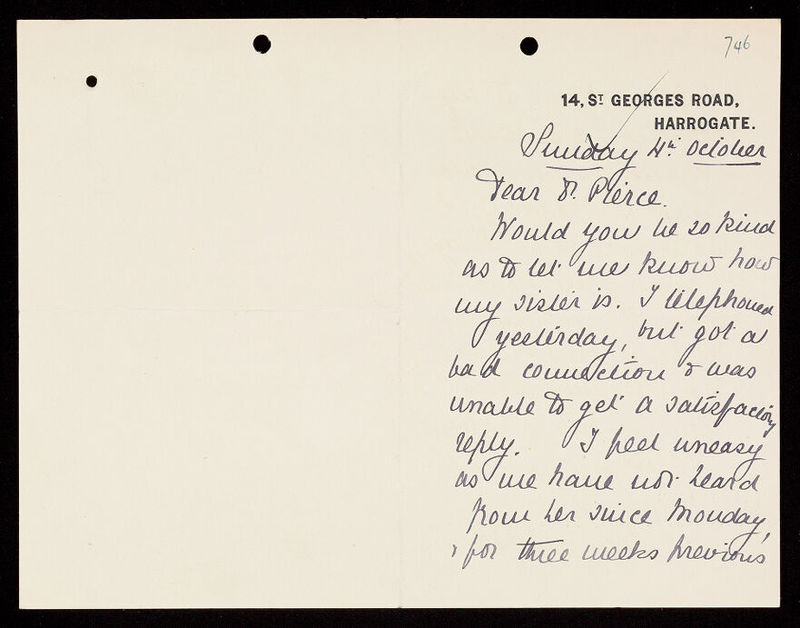 746
14, ST GEORGES ROAD,
HARROGATE.
Sunday 4th October
Dear Dr. Pierce.
Would you be so kind
as to let me know how
my sister is. I telephoned
yesterday, but got a
bad connection & was
unable to get a satisfactory
reply. I feel uneasy
as we have not heard
from her since Monday,
& for three weeks previous